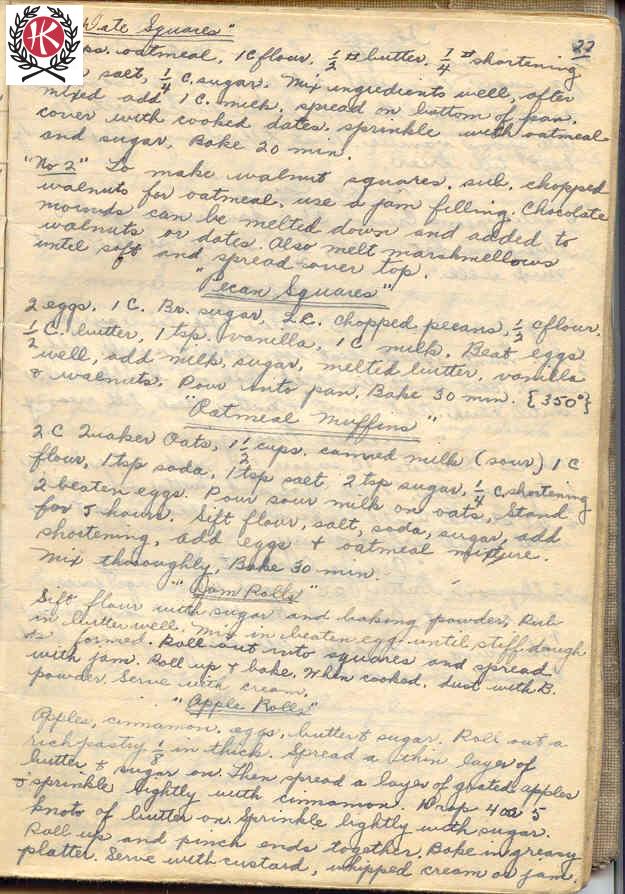 "Date Squares"
22
oatmeal, 1C flour, ½ # butter, ¼ # shortening
salt, ¼ C. sugar. Mix ingredients well, after
mixed add 1 C. milk, spread on bottom of pan.
cover with cooked dates, sprinkle with oatmeal
and sugar. Bake 20 min.
"No 2" To make walnut squares, sub. chopped
walnuts for oatmeal, use a jam filling. Chocolate
mounds can be melted down and added to
walnuts or dates. Also melt marshmellows
until soft and spread over top.
"Pecan Squares"
2 eggs, 1 C. Br. sugar, 2 C. chopped pecans, ½ c flour,
½ C. butter, 1 tsp. vanilla, 1 C milk. Beat eggs
well, add milk, sugar, melted butter, vanilla
& walnuts. Pour into pan. Bake 30 min. {350°}
"Oatmeal Muffins"
2 C Quaker Oats, 1½ cups, canned milk (sour) 1 C
flour, 1 tsp soda, 1 tsp salt, 2 tsp sugar, ¼ c. shortening
2 beaten eggs. Pour sour milk on oats, Stand
for 5 hours. Sift flour, salt, soda, sugar, add
shortening, add eggs & oatmeal mixture.
Mix thoroughly, Bake 30 min.
"Jam Rolls"
Sift flour with sugar and baking powder, Rub
in butter well. Mix in beaten egg until stiff dough
is formed. Roll out into squares and spread
with jam. Roll up & bake. When cooked, dust with B.
powder. Serve with cream.
"Apple Rolls"
Apples, cinnamon, eggs, butter & sugar. Roll out a
rich pastry ⅛ in thick. Spread a thin layer of
butter & sugar on. Then spread a layer of grated apples
& sprinkle lightly with cinnamon. Drop 4 or 5
knots of butter on. Sprinkle lightly with sugar.
Roll up and pinch ends together. Bake in greasy
platter. Serve with custard, whipped cream or jam.